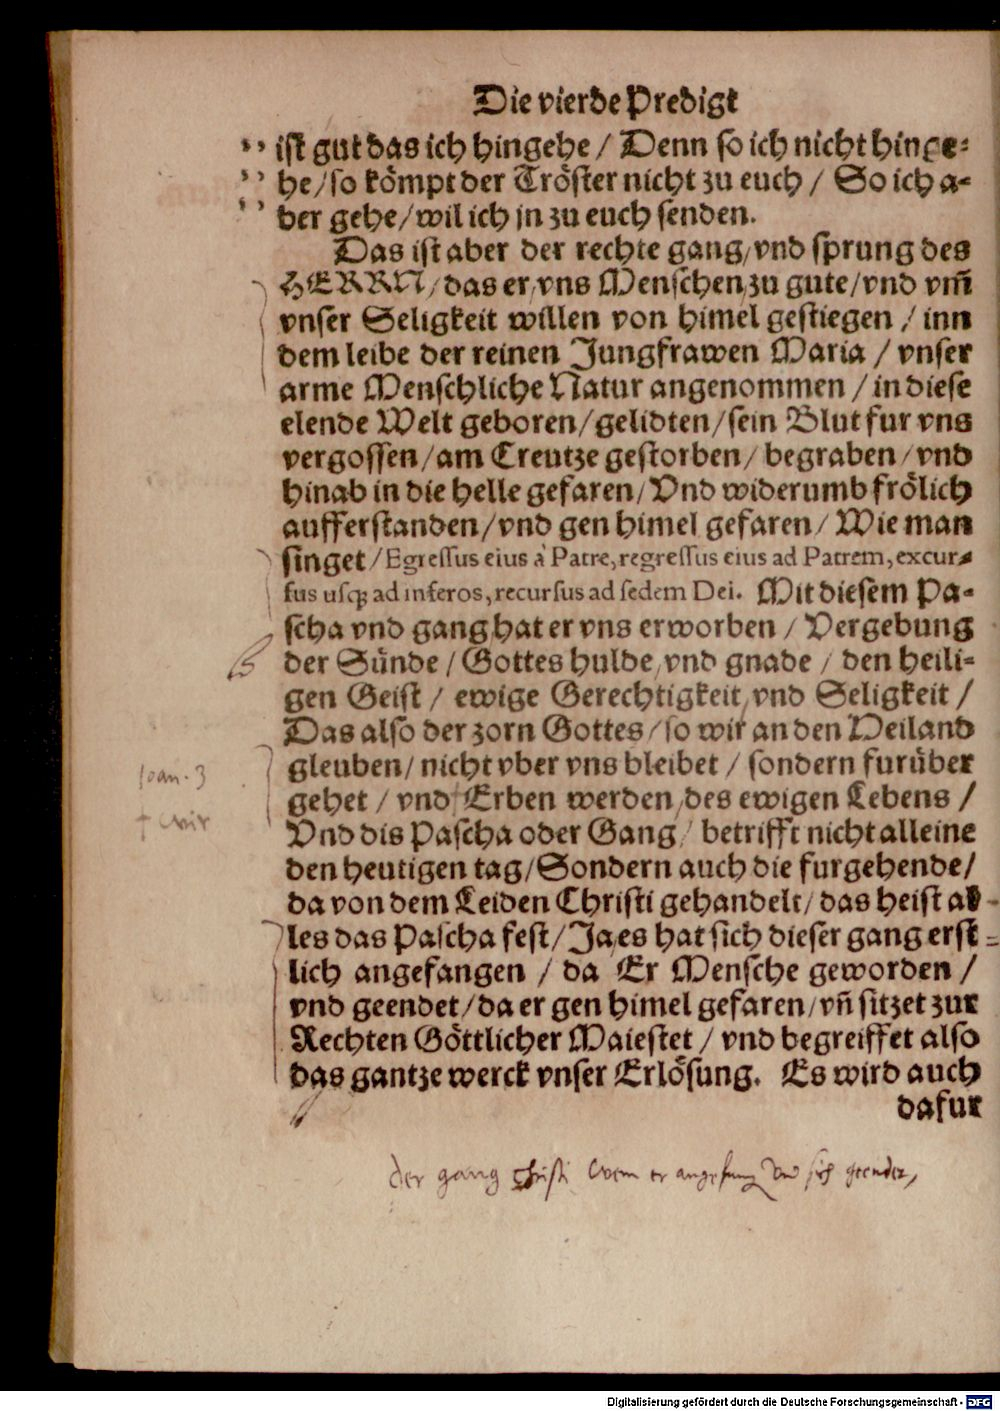 Die vierde Predigt
ist gut das ich hingehe / Denn so ich nicht hinge-
he / so kömpt der Tröster nicht zu euch / So ich a-
ber gehe / wil ich jn zu euch senden.
Das ist aber der rechte gang / vnd sprung des
HERRN / das er / vns Menschen zu gute / vnd vm̃
vnser Seligkeit willen von himel gestiegen / inn
dem leibe der reinen Jungfrawen Maria / vnser
arme Menschliche Natur angenommen / in diese
elende Welt geboren / gelidten / sein Blut fur vns
vergossen / am Creutze gestorben / begraben / vnd
hinab in die helle gefaren / Vnd widerumb frölich
aufferstanden / vnd gen himel gefaren / Wie man
singet / Egressus eius à Patre, regressus eius ad Patrem, excur-
sus usq́ ad inferos, recursus ad sedem Dei. Mit diesem Pa-
scha vnd gang hat er vns erworben / Vergebung
der Sünde / Gottes hulde / vnd gnade / den heili-
gen Geist / ewige Gerechtigkeit / vnd Seligkeit /
Das also der zorn Gottes / so wir an den Heiland
Ioan. 3
gleuben / nicht vber vns bleibet / sondern furüber
gehet / vnd † Erben werden / des ewigen Lebens /
† wir
Vnd dis Pascha oder Gang / betrifft nicht alleine
den heutigen tag / Sondern auch die furgehende /
da von dem Leiden Christi gehandelt / das heist al-
les das Pascha fest / Ja es hat sich dieser gang erst-
lich angefangen / da Er Mensche geworden /
vnd geendet / da er gen himel gefaren / vñ sitzet zur
Rechten Göttlicher Maiestet / vnd begreiffet also
das gantze werck vnser Erlösung. Es wird auch
dafur
der gang Christi wem er angefang vnd sich geendet,
Digitalisierung gefördert durch die Deutsche Forschungsgemeinschaft - DFG